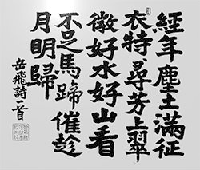 經年塵土滿征
衣特〻尋芳上翠
微好水好山看
不足馬蹄催趁
月明歸
岳飛詩一首